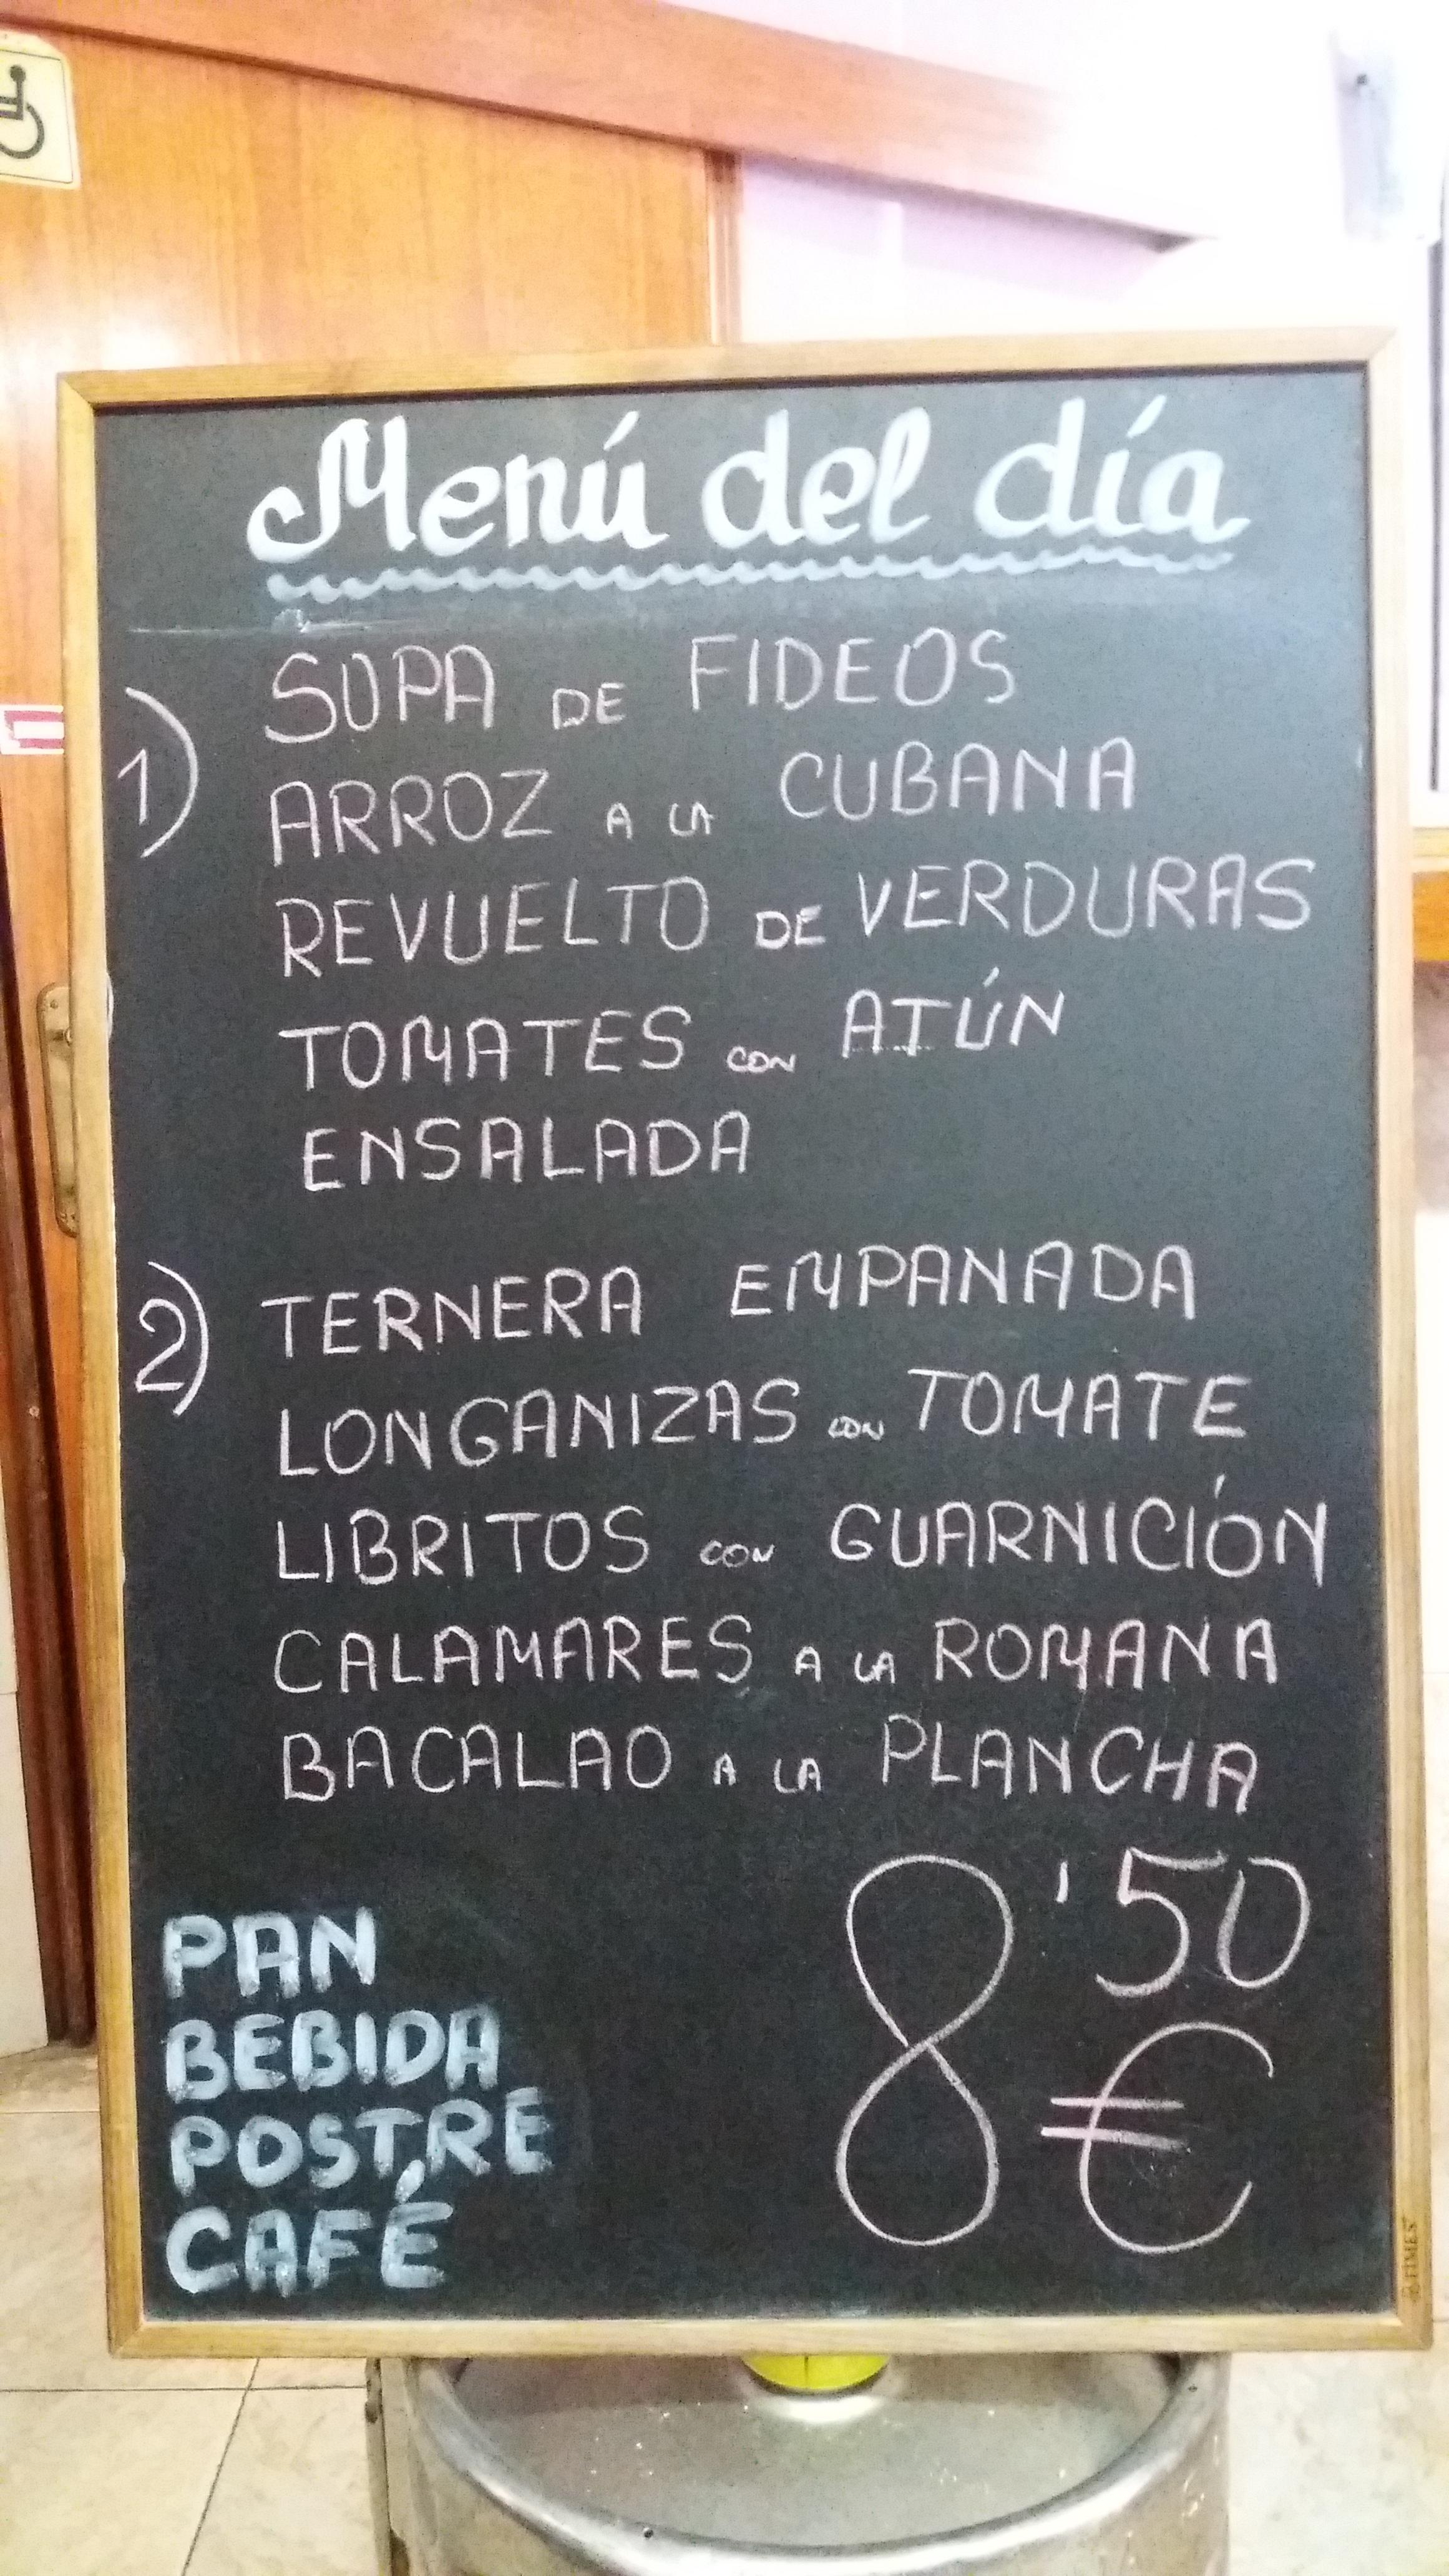 Menú del día
1) SOPA DE FIDEOS
ARROZ A LA CUBANA
REVUELTO DE VERDURAS
TOMATES CON ATÚN
ENSALADA
2) TERNERA EMPANADA
LONGANIZAS CON TOMATE
LIBRITOS CON GUARNICIÓN
CALAMARES A LA ROMANA
BACALAO A LA PLANCHA
8'50 €
PAN
BEBIDA
POSTRE
CAFÉ